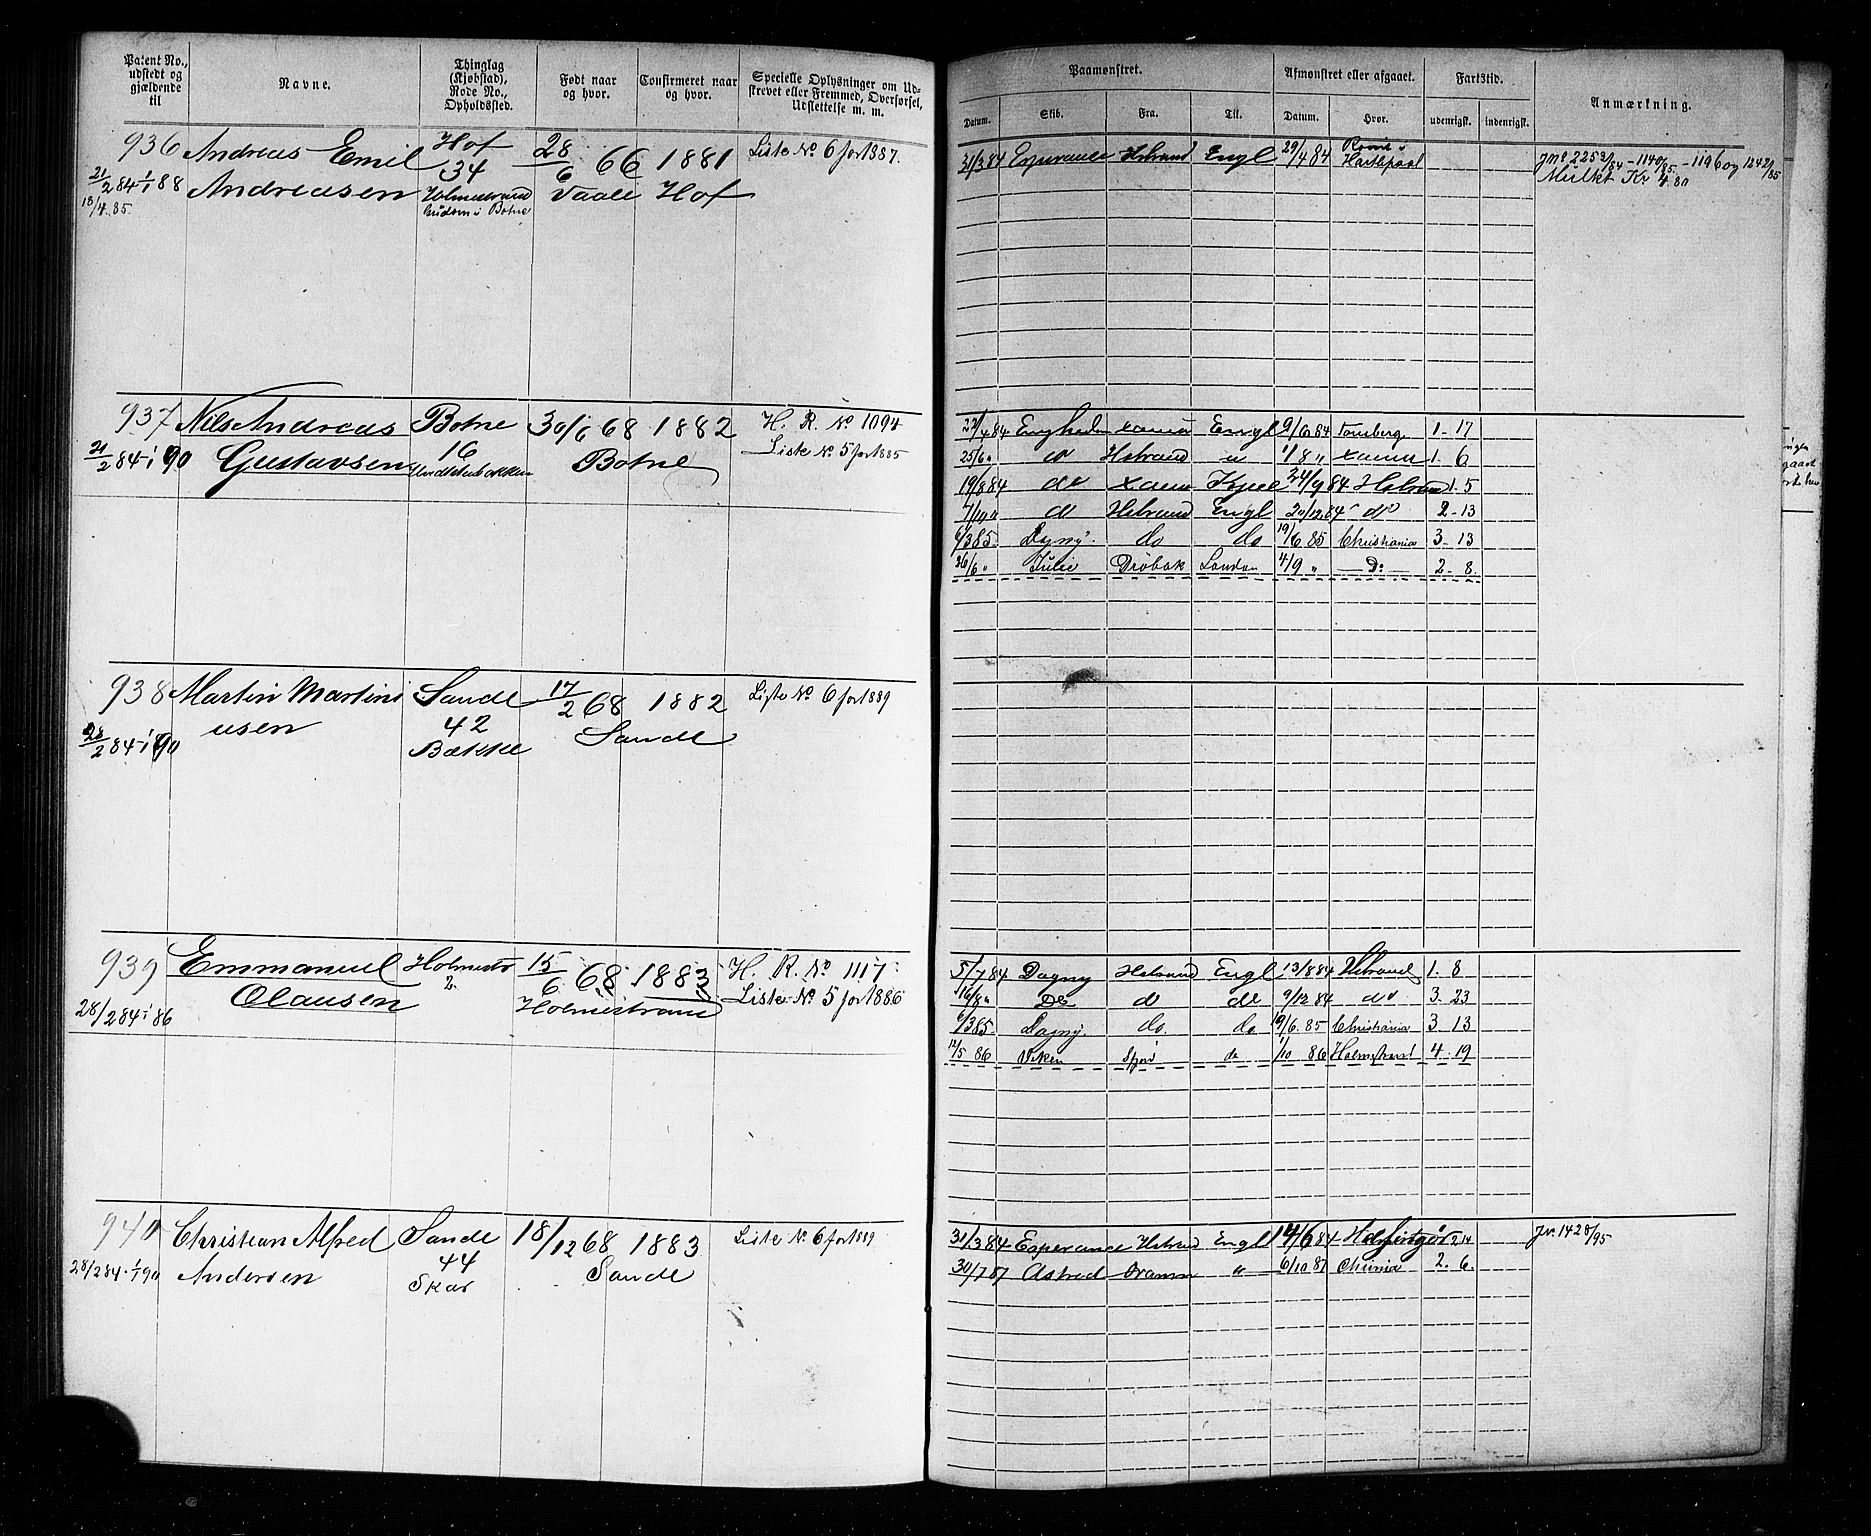 Patent No., udstedt og gjældende til
Navne.
Thinglag (Kjøbstad), Rode No., Opholdssted.
Født naar og hvor.
Confirmeret naar og hvor.
Specielle Oplysninger om Udskrevet eller Fremmed, Overførsel, Udslettelse m. m.
Paamønstret.
Afmønstret eller afgaaet.
Fartstid.
Anmærkning.
Datum. Skib. Fra. Til. Datum. Hvor. udenrigsk. indenrigsk.
936 Andreas Emil Hof 28/6 66 1881 Liste No 6 for 1887.
21/2 84 1/1 88 Andreasen 34 Vaale Hof
18/4 85. Botne
31/3 84 Esperance Hstrand Engl 29/4 84 Hartlepool
Mulkt Kr 4.80
937 Nils Andreas Botne 30/6 68 1882 H. R. No 1094
21/2 84 - 1/1 90 Gustavsen 16 Botne Liste No 5 for 1885
27/4 84 Engl 9/6 84 Tønsberg 1 - 17
25/6 " do Hstrand 1/8 " 1. 6
19/8 84 do 24/9 84 Hstrand 1. 5
7/10 " do Hstrand Engl 20/12 84 do 2 - 13
6/3 85. Dagny do do 19/6 85 Christiania 3 - 13
26/6 " Julie Drøbak London 4/9 " Do 2 - 8.
938 Martin Martini Sande 17/2 68 1882 Liste No 6 for 1889
usen 42 Sande
28/2 84 - 1/1 90 Bække
939 Emmanuel Holmestr 15/6 68 1883 H. R. No 1117
Olausen 2. Holmestrand Liste No 5 for 1886
28/2 84 1/1 86
5/7 84 Dagny Hstrand Engl 13/8 84 Hstrand 1. 8
16/8 " Do do do 9/12 84 do 3. 23
6/3 85. Dagny. do. do 19/6. 85 Christiania 3 - 13
12/5 86 Viken do 1/10 86 Holmestrand 4 - 19
940 Christian Alfred Sande 18/12 68 1883 Liste No 6 for 1889
28/2 84 - 1/1 90 Andersen 44 Sande
Skar
31/3 84 Esperance Hstrand Engl 14/6 84 Helsingør 2. 14 Jr. 1428/95
30/7 87 Astred Dramm " 6/10 87 Chania 2. 6.